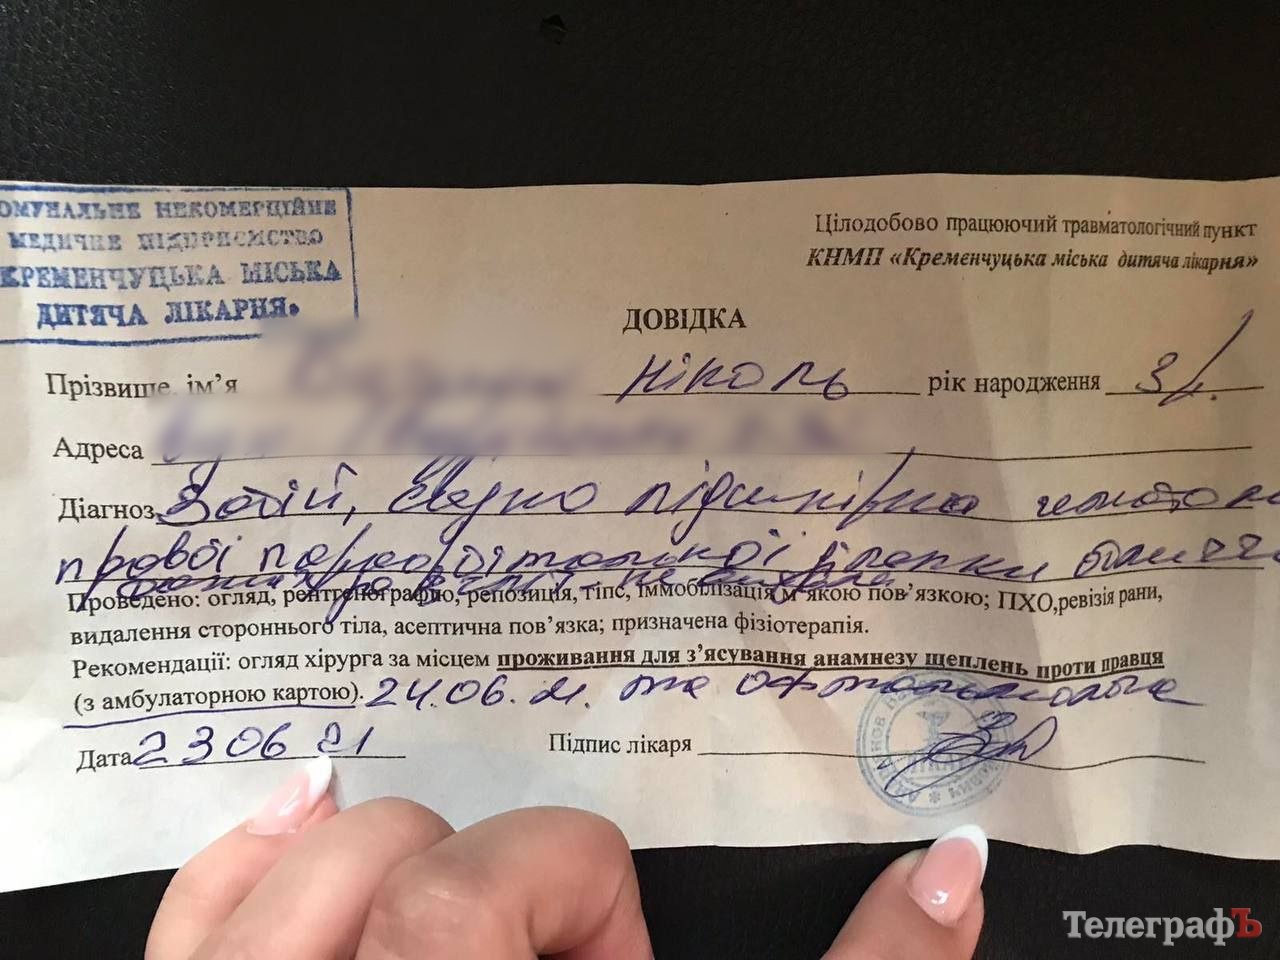 ОМУНАЛЬНЕ НЕКОМЕРЦІЙНЕ
МЕДИЧНЕ ПІДПРИЄМСТВО
КРЕМЕНЧУЦЬКА МІСЬКА
ДИТЯЧА ЛІКАРНЯ»
Цілодобово працюючий травматологічний пункт
КНМП «Кременчуцька міська дитяча лікарня»
ДОВІДКА
Прізвище, ім’я Ніколь рік народження 3
Адреса
Діагноз Забій, підшкірна
правої параорбітальної ділянки
Проведено: огляд, рентгенографію, репозиція, гіпс, іммобілізація м’якою пов’язкою; ПХО,ревізія рани,
видалення стороннього тіла, асептична пов’язка; призначена фізіотерапія.
Рекомендації: огляд хірурга за місцем проживання для з’ясування анамнезу щеплень проти правця
(з амбулаторною картою). 24.06.21. та офтальмолога
Дата 23 06 21 Підпис лікаря
ТелеграфЪ